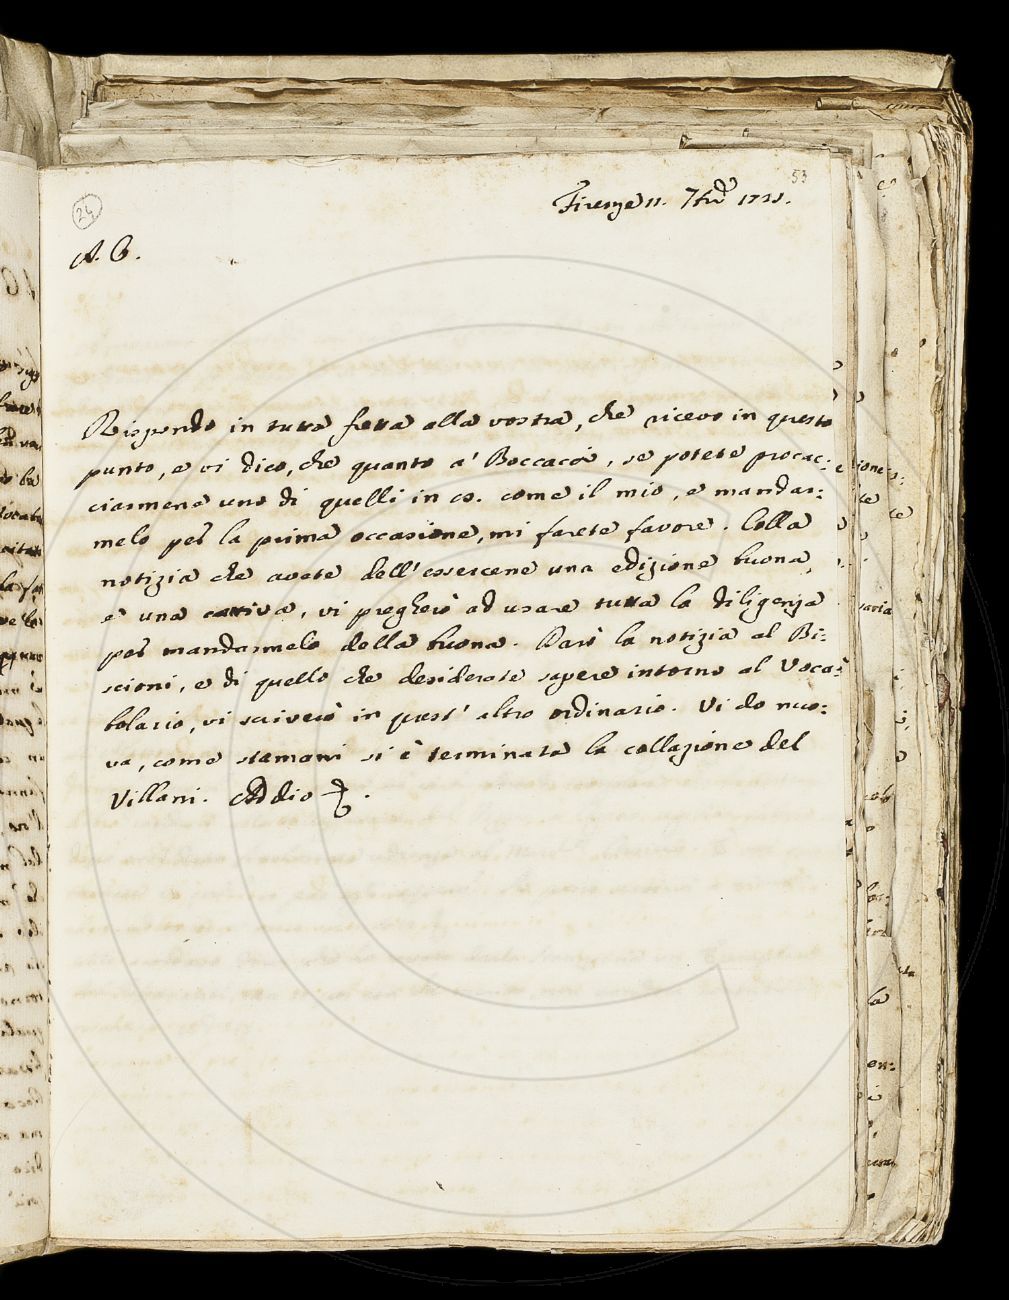 53
24
Firenze 11. 7bre 1721.
A. C.
Rispondo in tutta fretta alla vostra, che ricevo in questo
punto, e vi dico, che quanto a' Boccacci, se potete procac:
ciarmene uno di quelli in co. come il mio, e mandar:
melo per la prima occasione, mi farete favore. Colla
notizia che avete dell' essercene una edizione buona,
e una cattiva, vi pregherò ad usare tutta la diligenza
per mandarmelo della buona. Darò la notizia al Bi:
scioni, e di quello che desiderate sapere intorno al Voca:
bolario, vi scriverò in quest' altro ordinario. Vi do nuo:
va, come stamani si è terminata la collazione del
Villani. Addio